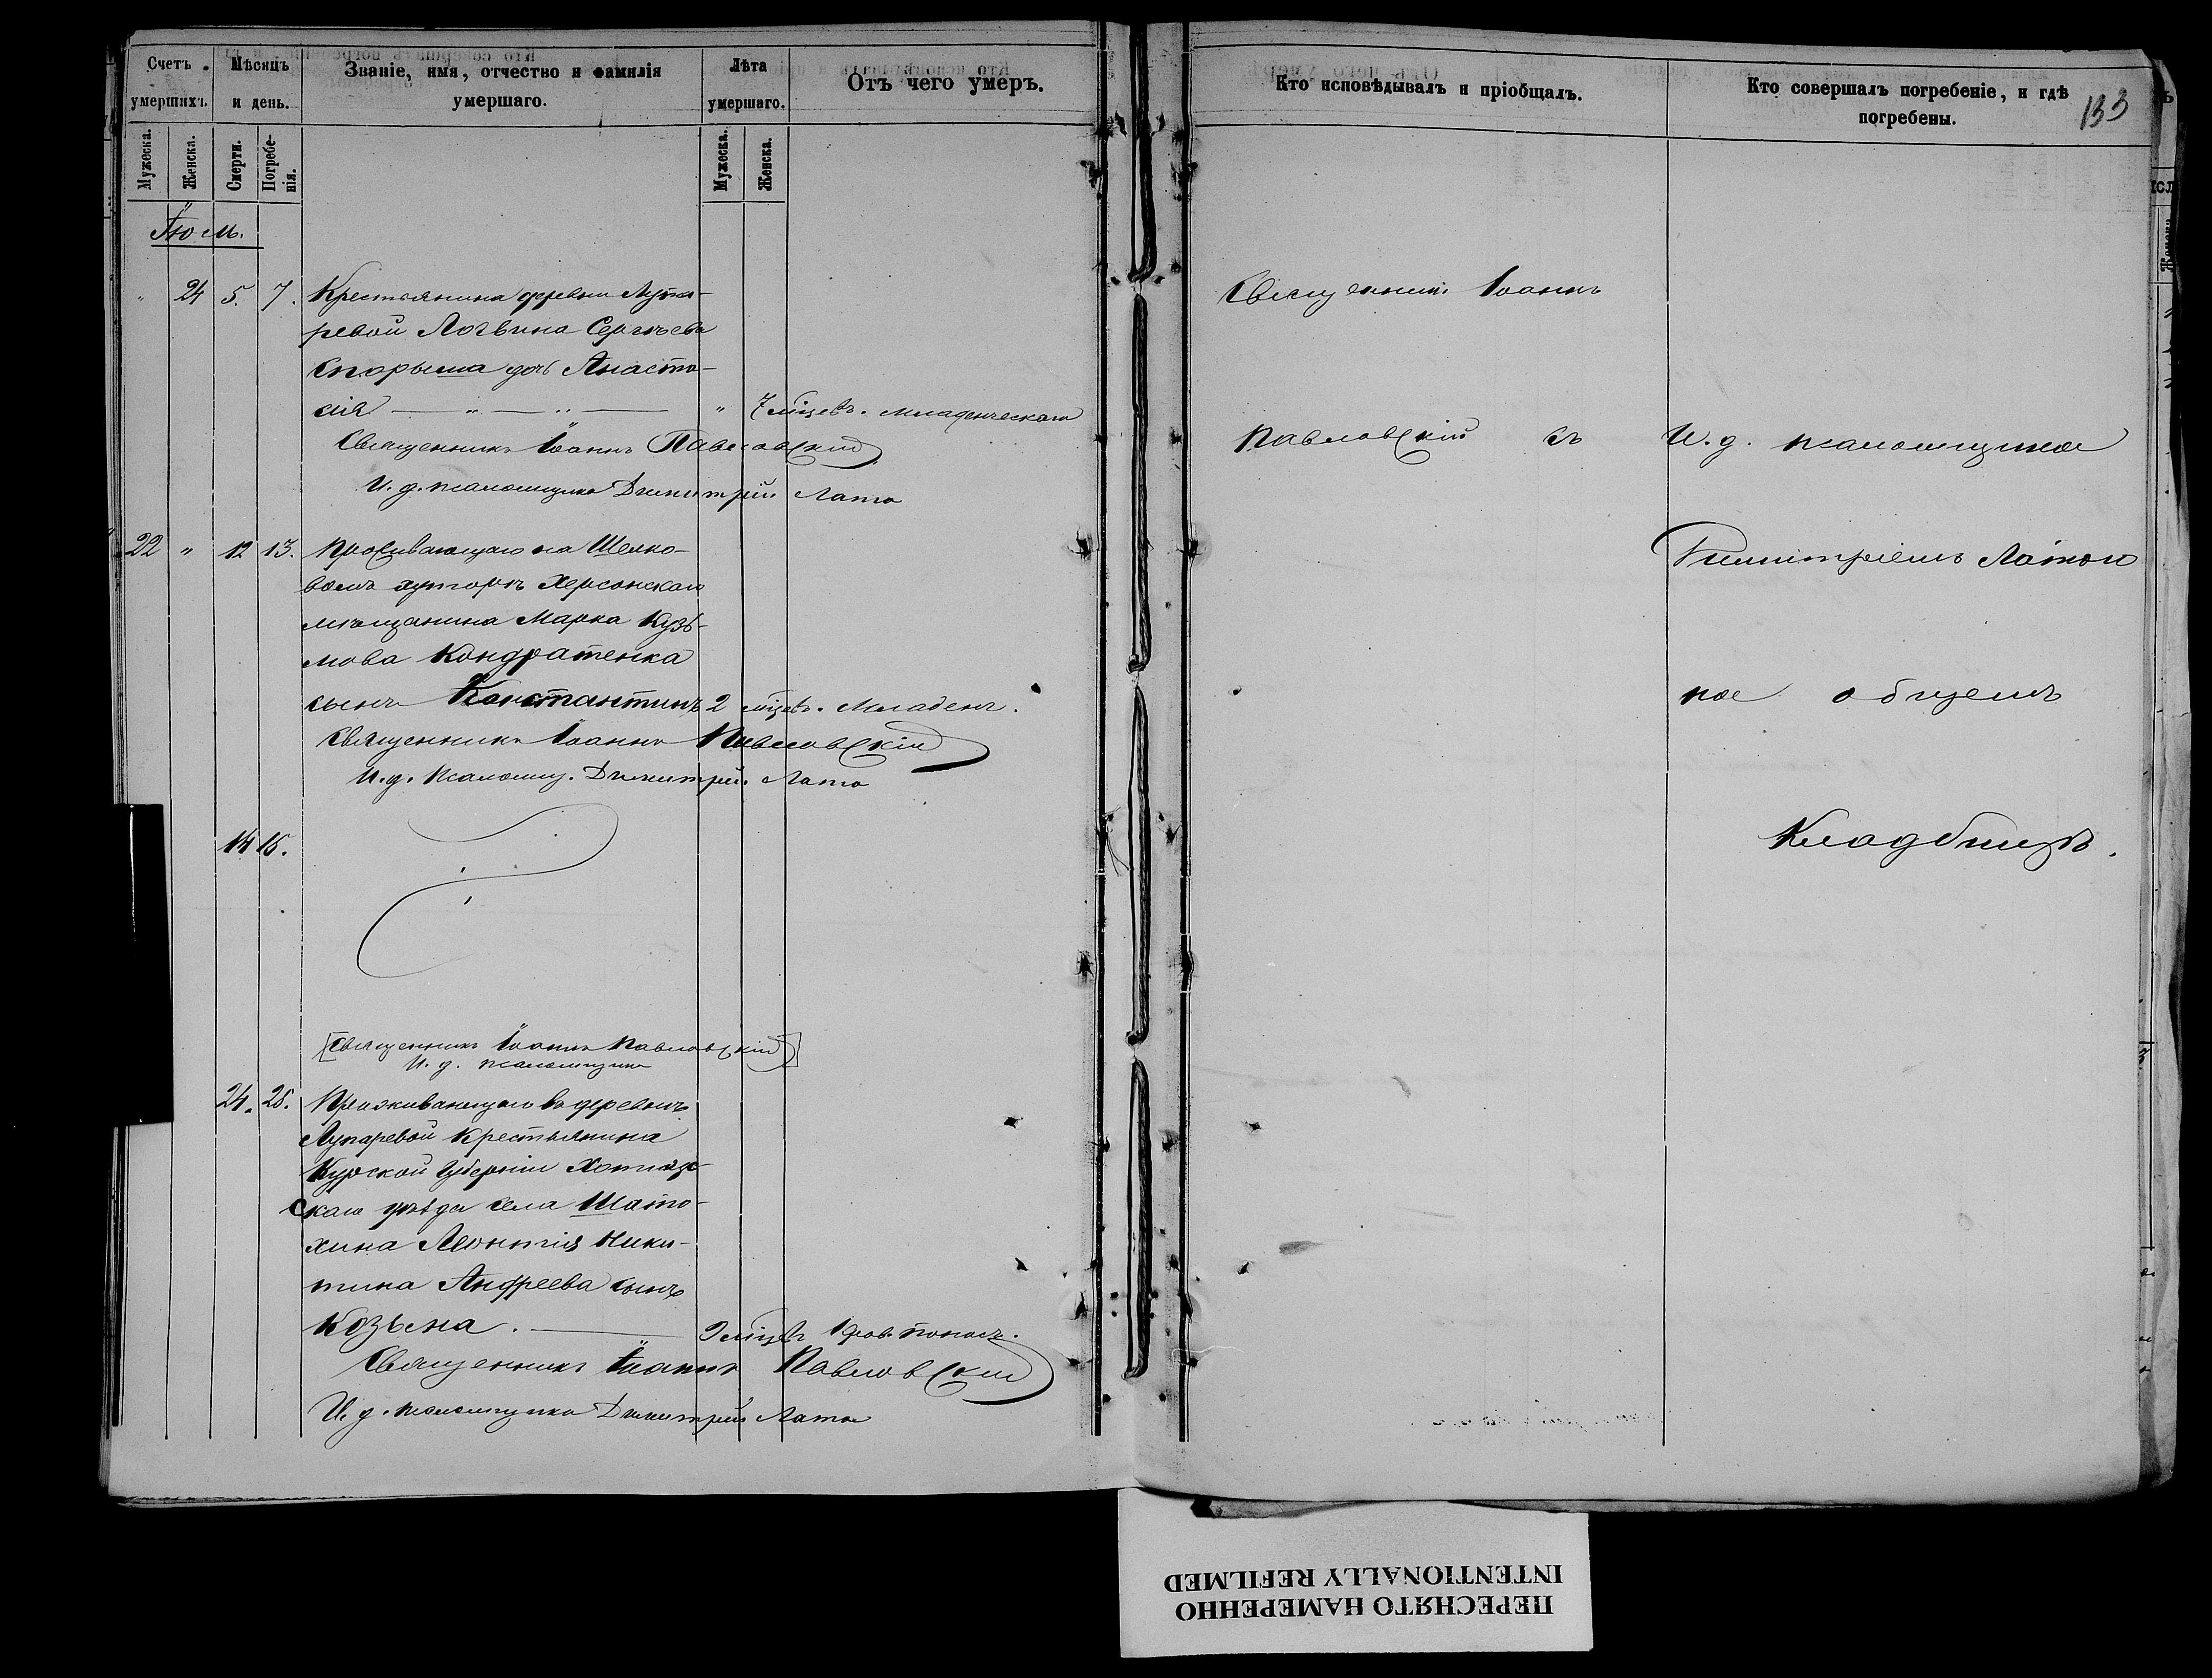 Счетъ умершихъ.
Мѣсяцъ и день.
Званіе, имя, отчество и фамилія умершаго.
Лѣта умершаго.
Отъ чего умеръ.
Кто исповѣдывалъ и пріобщалъ.
Кто совершалъ погребеніе, и гдѣ погребены.
133
Мужеска.
Женска.
Смерти.
Погребенія.
Мужеска.
Женска.
" 24 5. 7. Крестьянина деревни Лупа-
ревой Логвина Сергѣева
Спорыша дочь Анаста-
сія — " — " — " 7 мѣцевъ. младенческаго
Священникъ Іоаннъ Павловскій
И. д. псаломщика Димитрій Лато
22 " 12 13. Проживающаго на Шелко-
вомъ хуторѣ Херсонскаго
мѣщанина Марка Кузь-
мова Кондратенка
сынъ Константинъ 2 мѣцевъ. Младен.
Священникъ Іоаннъ Павловскій
И. д. псаломщ. Димитрій Лато
14 15.
[Священникъ Іоаннъ Павловскій]
И. д. псаломщика
24. 25. Проживающаго въ деревнѣ
Лупаревой крестьянина
Курской губерніи
скаго уѣзда села Шато-
хина Леонтія Ники-
тина Андреева сынъ
Козьма. — мѣцевъ Кров. поносъ.
Священникъ Іоаннъ Павловскій
И. д. псаломщика Димитрій Лато
Священникъ Іоаннъ
Павловскій съ И. д. псаломщика
Димитріемъ Лато
общемъ
Кладбищѣ.
ПЕРЕСНЯТО НАМЕРЕННО
INTENTIONALLY REFILMED